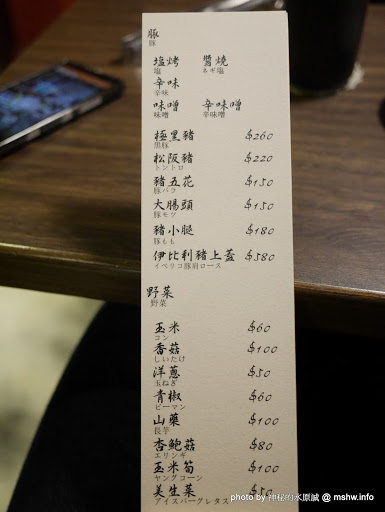 豚
豚
塩烤 醬燒
塩 ネギ塩
辛味
辛味
味噌 辛味噌
味噌 辛味噌
極黑豬 $260
黒豚
松阪豬 $220
トントロ
豬五花 $150
豚バラ
大腸頭 $150
豚モツ
豬小腿 $180
豚もも
伊比利豬上蓋 $580
イベリコ豚肩ロース
野菜
野菜
玉米 $60
コン
香菇 $100
しいたけ
洋蔥 $50
玉ねぎ
青椒 $60
ピーマン
山藥 $100
長芋
杏鮑菇 $80
エリンギ
玉米筍 $100
ヤングコーン
美生菜 $50
アイスバーグレタス
photo by 神秘的水原誠 @ mshw.info